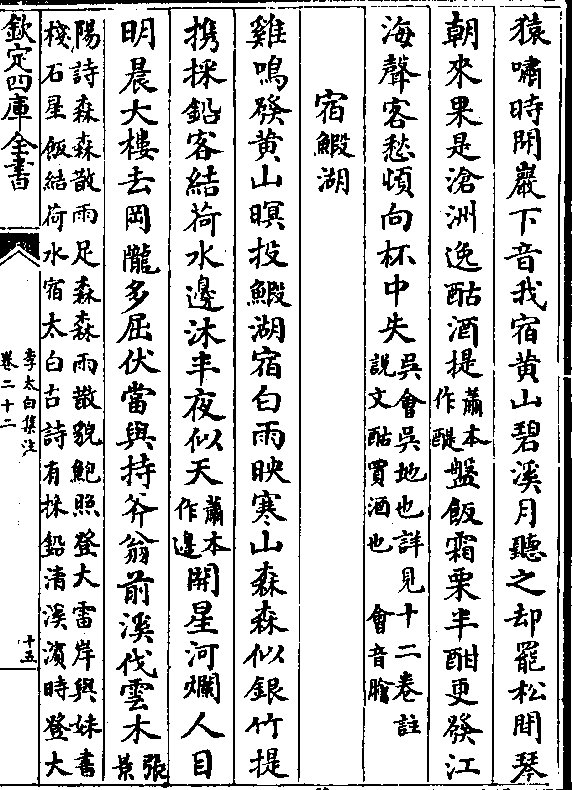 猿嘯時聞巖下音我宿黄山碧溪月聽之却罷松間琴
朝來果是滄洲逸酤酒提蕭本作醍盤飯霜栗半酣更發江
海聲客愁頓向杯中失吳會吳地也詳見十二卷註 會音膾 説文酤買酒也
宿鰕湖
雞鳴發黄山暝投鰕湖宿白雨映寒山森森似銀竹提
携採鉛客結荷水邊沐半夜似天蕭本作邉開星河爛人目
明晨大樓去岡隴多屈伏當與持斧翁前溪伐雲木張景
陽詩森森散雨足森森雨散貌鮑照登大雷岸與妹書
棧石星飯結荷水宿太白古詩有採鉛清溪濱時登大
欽定四庫全書
李太白集注
卷二十二
十五